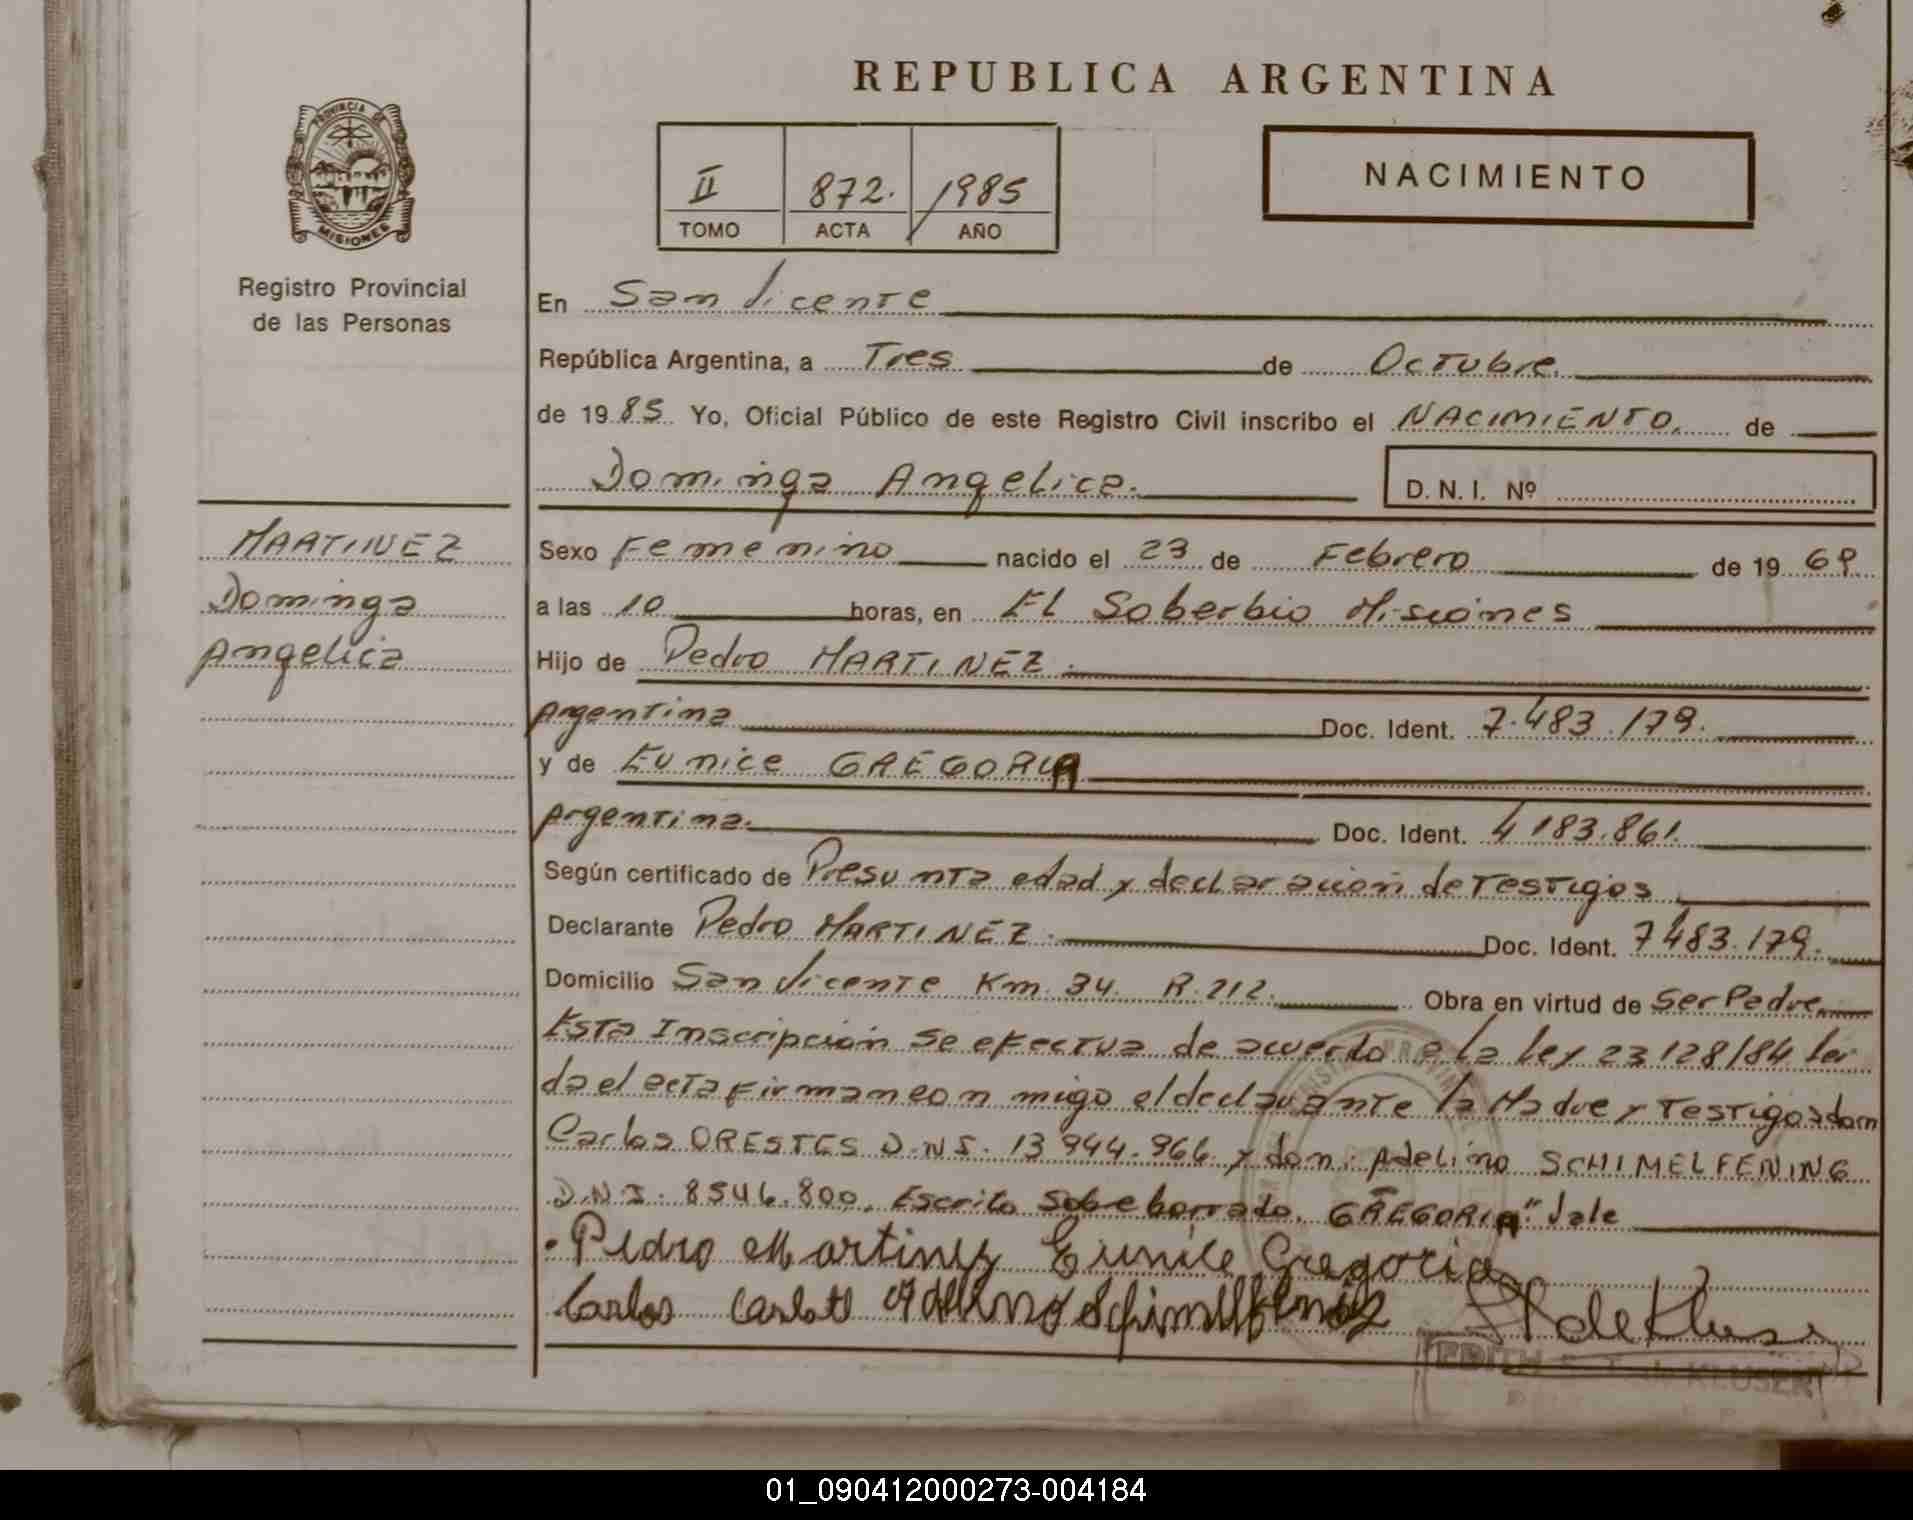 REPUBLICA ARGENTINA
PROVINCIA DE
MISIONES
Registro Provincial
de las Personas
II 872. 1985
TOMO ACTA AÑO
NACIMIENTO
En San Vicente
República Argentina, a Tres de Octubre.
de 19 85. Yo, Oficial Público de este Registro Civil inscribo el NACIMIENTO. de
Dominga Angelica. D. N. I. Nº
MARTINEZ
Dominga
Angelica
Sexo Femenino nacido el 23 de Febrero de 19 69
a las 10 horas, en El Soberbio Misiones
Hijo de Pedro MARTINEZ.
Argentina Doc. Ident. 7.483.179.
y de Eunice GREGORIA
Argentina. Doc. Ident. 4183.861.
Según certificado de Presunta edad y declaración de Testigos
Declarante Pedro MARTINEZ. Doc. Ident. 7483.179.
Domicilio San Vicente Km. 34. R.212. Obra en virtud de Ser Padre.
Esta Inscripción se efectua de acuerdo a la Ley 23128/84 lei
da el acta firman con migo el declarante la Madre y Testigos dom
Carlos ORESTES D.N.I. 13944.966. y don: Adelino SCHIMELFENING
D.N.I. 8546.800. Escrito sobre borrado. GREGORIA" Vale
Pedro Martinez Eunice Gregoria
Carlos
EDITH de KLUSER
01_090412000273-004184